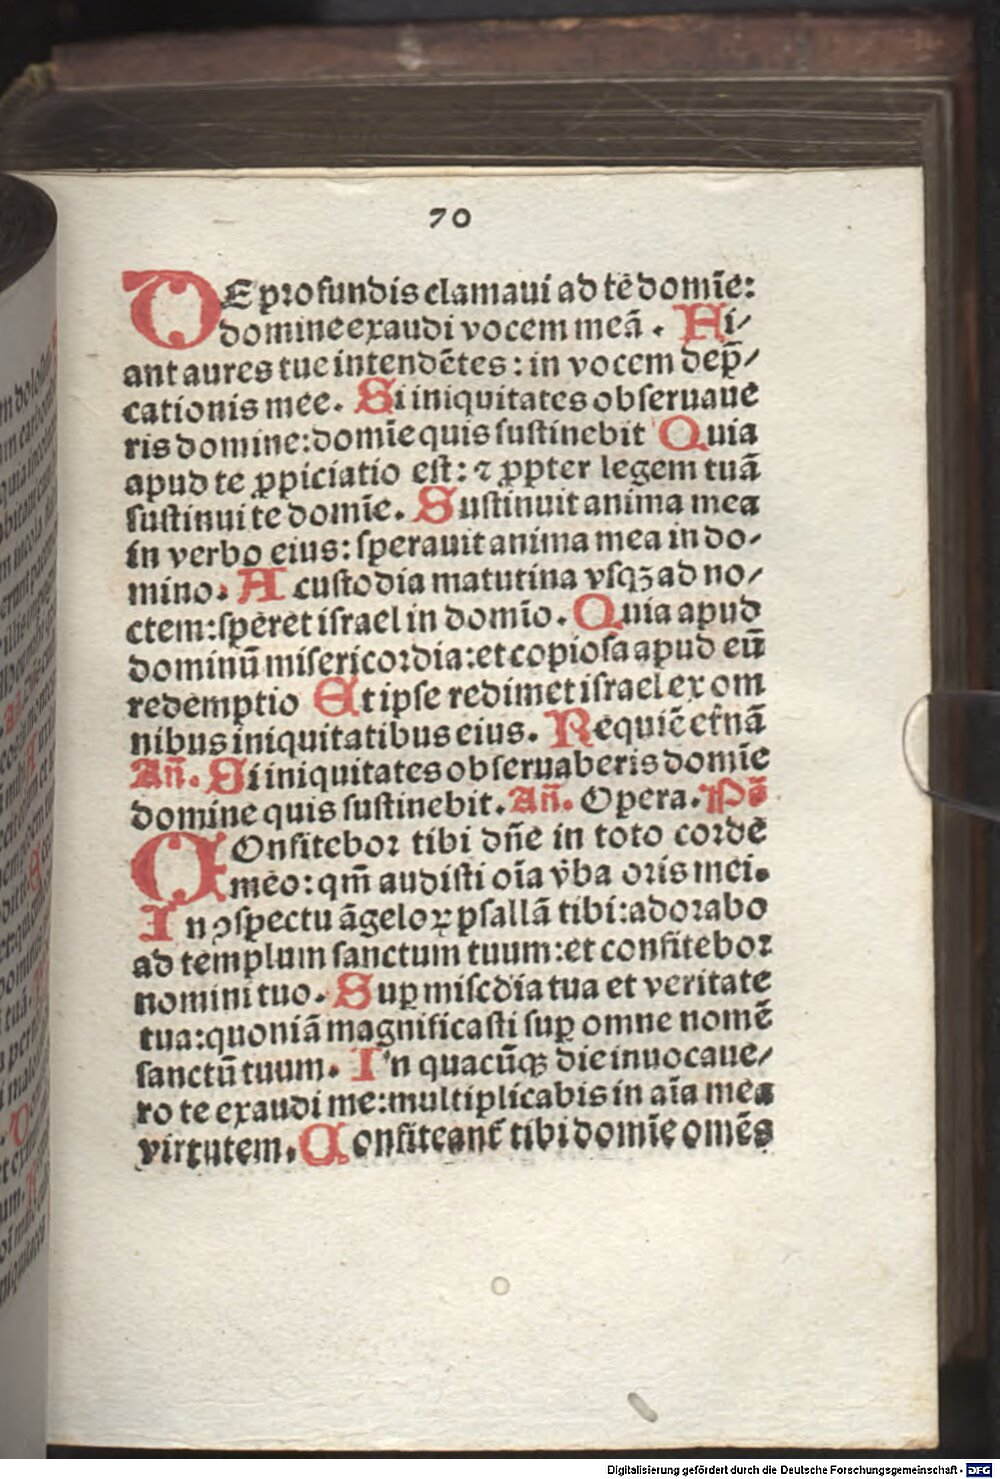 70
DE profundis clamaui ad te domīe:
domine exaudi vocem meā. Fi⸗
ant aures tue intendētes: in vocem dep̄⸗
cationis mee. Si iniquitates obseruaue
ris domine: domīe quis sustinebit Quia
apud te ꝓpiciatio est: ⁊ ꝓpter legem tuā
sustinui te domīe. Sustinuit anima mea
in verbo eius: sperauit anima mea in do⸗
mino. A custodia matutina vsqꝫ ad no⸗
ctem: speret israel in domīo. Quia apud
dominū misericordia: et copiosa apud eū
redemptio Et ipse redimet israel ex om
nibus iniquitatibus eius. Requiē etʼnā
Añ. Si iniquitates obseruaberis domīe
domine quis sustinebit. Añ. Opera. Pš
COnfitebor tibi dñe in toto corde
meo: qm̄ audisti oīa v̓ba oris mei.
In ꝯspectu āgeloꝝ psallā tibi: adorabo
ad templum sanctum tuum: et confitebor
nomini tuo. Suꝑ misc̄dia tua et veritate
tua: quoniā magnificasti suꝑ omne nomē
sanctū tuum. In quacūqꝫ die inuocaue⸗
ro te exaudi me: multiplicabis in aīa mea
virtutem. Confiteantʼ tibi domīe omēs
m dolo
Digitalisierung gefördert durch die Deutsche Forschungsgemeinschaft - DFG